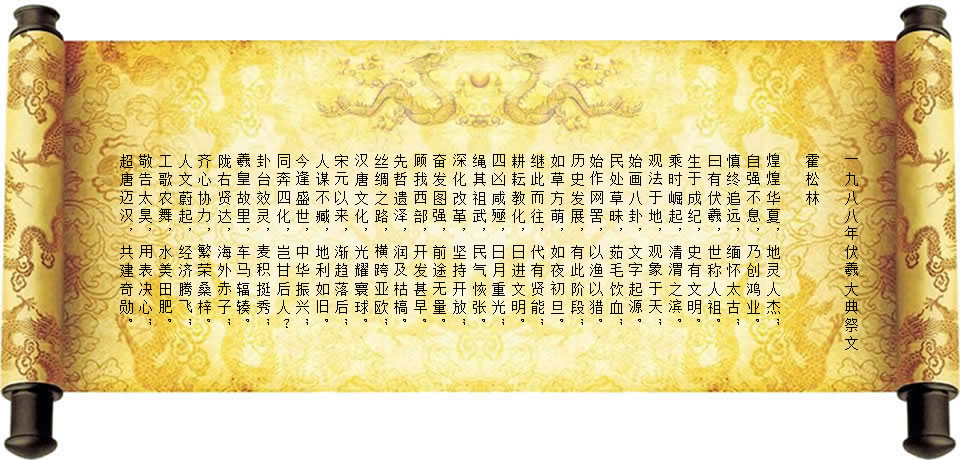 一九八八年伏羲大典祭文
霍松林
煌煌华夏，地灵人杰；
自强不息，乃创鸿业。
慎终追远，缅怀太古；
曰有伏羲，世称人祖。
生于成纪，史有文明；
乘时崛起，清渭之滨。
观法于地，观象于天；
始画八卦，文字起源。
民处草昧，茹毛饮血；
始作网罟，以渔以猎。
历史发展，有此阶段；
如草方萌，如夜初旦。
继此而往，代有贤能；
耕耘教化，日进文明。
四凶咸殛，日月重光；
绳其祖武，民气恢张。
深化改革，坚持开放；
奋发图强，前途无量。
顾我西部，开发甚早；
先哲遗泽，润及枯槁。
丝绸之路，横跨亚欧；
汉唐文化，光耀寰球。
宋元以来，渐趋落后；
人谋不臧，地利如旧。
今逢盛世，中华振兴；
同奔四化，岂甘后人？
卦台效灵，麦积挺秀；
羲皇故里，车马辐辏。
陇右贤达，海外赤子；
齐心协力，繁荣桑梓。
人文蔚起，经济腾飞；
工歌农舞，水美田肥。
敬告太昊，用表决心；
超唐迈汉，共建奇勋。